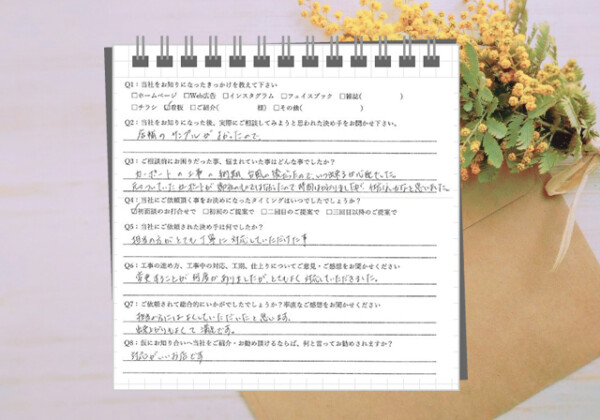 Q1:当社をお知りになったきっかけを教えて下さい
□ホームページ □Web広告 □インスタグラム □フェイスブック □雑誌( )
□チラシ ☑看板 □ご紹介( 様) □その他( )
Q2:当社をお知りになった後、実際にご相談してみようと思われた決め手をお聞かせ下さい。
店舗の サンプルが よかったので。
Q3:ご相談前にお困りだった事、悩まれていた事はどんな事でしたか?
カーポートの工事の納期、
Q4:当社にご依頼頂く事をお決めになったタイミングはいつでしたでしょうか?
☑初面談のお打合せで □初回のご提案で □二回目のご提案で □三回目以降のご提案で
Q5:当社にご依頼された決め手は何でしたか?
担当の方がとても丁寧に対応していただけた事
Q6:工事の進め方、工事中の対応、工期、仕上りについてご意見・ご感想をお聞かせください
変更することが何度がありましたが、とてもよく対応していただきました。
Q7:ご依頼されて総合的にいかがでしたでしょうか?率直なご感想をお聞かせください
担当の方にはよくしていただいたと思います。
出来上がりもよくて満足です。
Q8:仮にお知り合いへ当社をご紹介・お勧め頂けるならば、何と言ってお勧めされますか?
対応がいいお店です